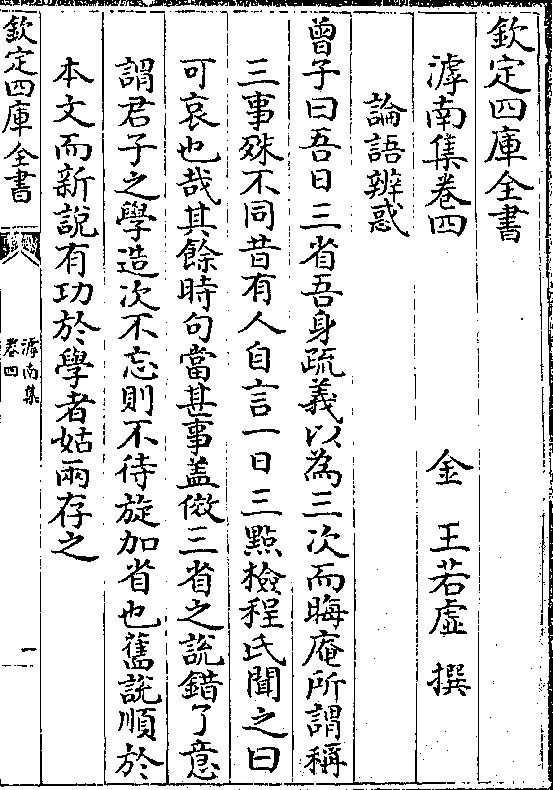 欽定四庫全書
滹南集卷四
金　王若虛　撰
論語辨惑
曾子曰吾日三省吾身疏義以為三次而晦庵所謂稱
三事殊不同昔有人自言一日三點檢程氏聞之曰
可哀也哉其餘時句當甚事盖傚三省之説錯了意
謂君子之學造次不忘則不待旋加省也舊説順於
本文而新説有功於學者姑兩存之
欽定四庫全書
滹南集
卷四
一